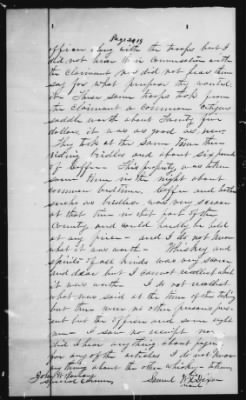 officer along with the troops but I
did not hear his conversation with
the claimant nor did not hear them
say for what purpose they wanted
it. These same troops took from
the claimant a common citizens
saddle worth about Twenty five
dollars it was as good as new.
They took at the same time three
riding bridles and about six pounds
of Coffee. This property was taken
some time in the night about
common bedtime. Coffee and
such as bridles was very scarce
at that time in that part of the
country and could hardly be had
at any price and I do not know
what it was worth. Whiskey and
spirits of all kinds was very scarce
and dear but I cannot recollect what
it was worth. I do not recollect
what was said at the time of the taking
but there were no other persons present
but the officers and some eight
men. I saw no receipt nor
did I hear anything about pay
for any of the articles. I do not know
any thing about the other whiskey taken
Special Commr
Samuel
mark